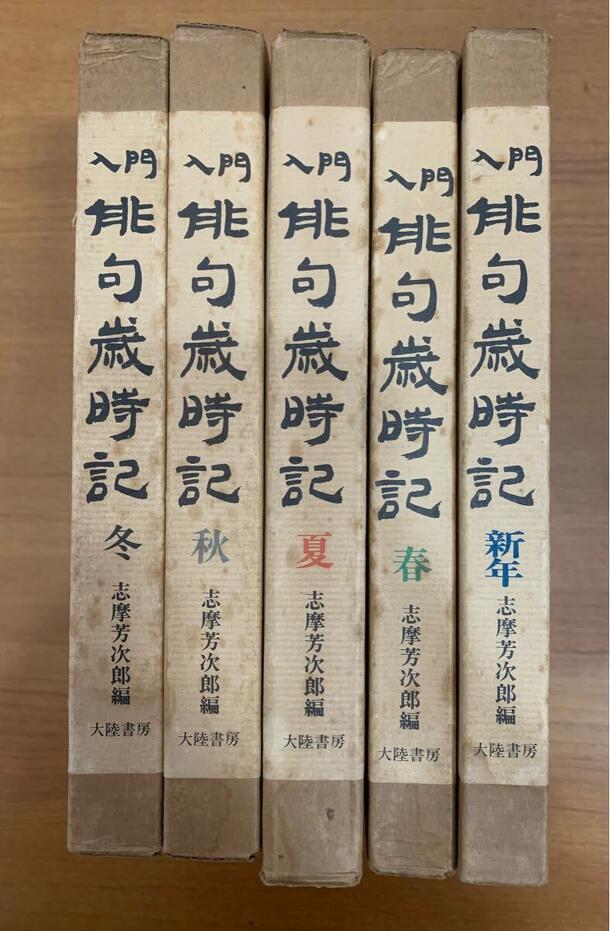 入門
俳句歳時記
冬
志摩芳次郎編
大陸書房
入門
俳句歳時記
秋
志摩芳次郎編
大陸書房
入門
俳句歳時記
夏
志摩芳次郎編
大陸書房
入門
俳句歳時記
春
志摩芳次郎編
大陸書房
入門
俳句歳時記
新年
志摩芳次郎編
大陸書房